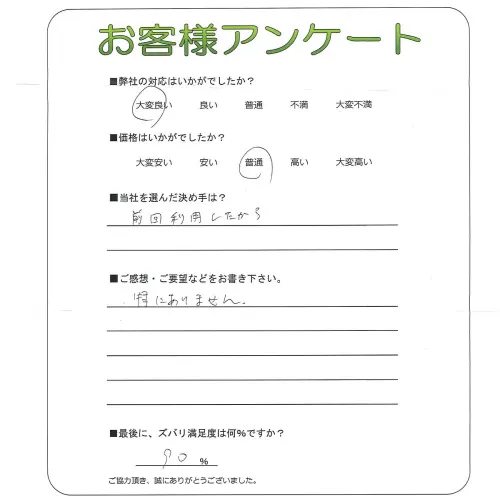 お客様アンケート
■弊社の対応はいかがでしたか？
大変良い 良い 普通 不満 大変不満
■価格はいかがでしたか？
大変安い 安い 普通 高い 大変高い
■当社を選んだ決め手は？
前回利用したから
■ご感想・ご要望などをお書き下さい。
特にありません。
■最後に、ズバリ満足度は何%ですか？
90 %
ご協力頂き、誠にありがとうございました。